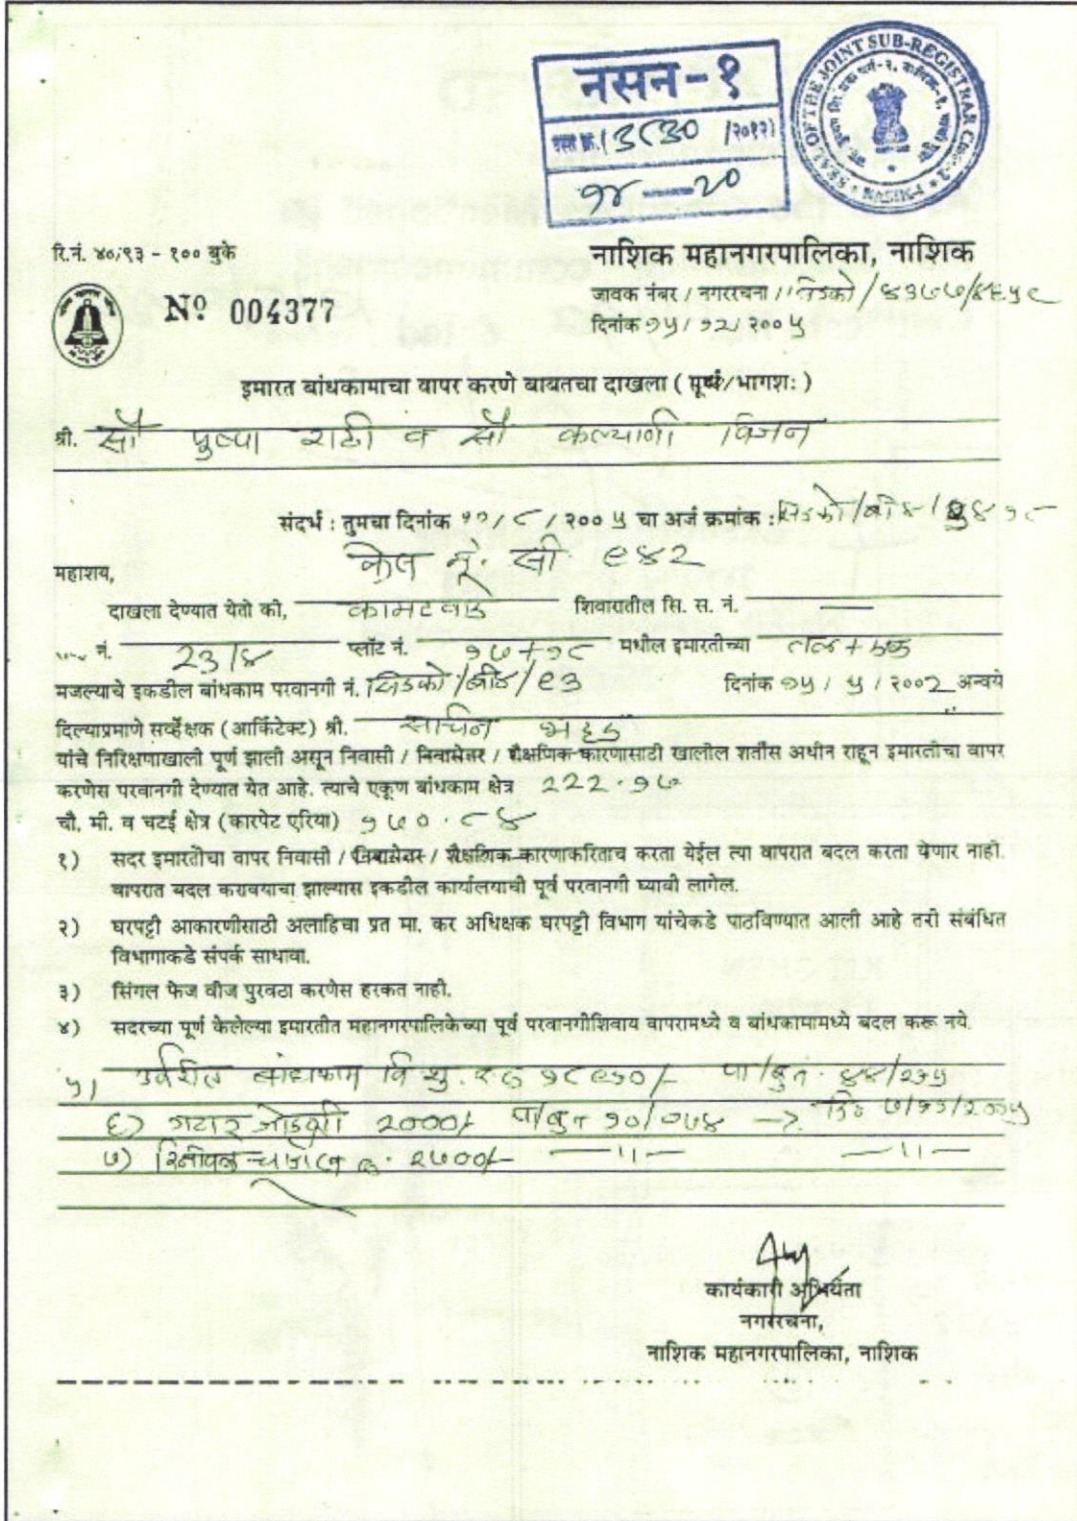 नसन-१
दस्त क्र. /२०१२)
१४ — २०
SEAL OF THE JOINT SUB-REGISTRAR
रि.नं. ४०/९३ - १०० बुके
नाशिक महानगरपालिका, नाशिक
जावक नंबर / नगररचना / सिडको /
Nº 004377
दिनांक १५/१२/२००५
इमारत बांधकामाचा वापर करणे बाबतचा दाखला ( पूर्ण/भागशः )
श्री. सौ पुष्पा राठी व सौ कल्याणी विजन
संदर्भ : तुमचा दिनांक १०/८/२००५ चा अर्ज क्रमांक : सिडको/बी४/
केस नं. सी ९४२
महाशय,
दाखला देण्यात येतो की, कामटवाडे शिवारातील सि. स. नं. —
नं. 23/४ प्लॉट नं. १७+१८ मधील इमारतीच्या तळ + एक
मजल्याचे इकडील बांधकाम परवानगी नं. सिडको/बी४/९३ दिनांक १५/५/२००२ अन्वये
दिल्याप्रमाणे सर्व्हेक्षक (आर्किटेक्ट) श्री. सचिन
यांचे निरिक्षणाखाली पूर्ण झाली असून निवासी / निवासेतर / शैक्षणिक कारणासाठी खालील शर्तीस अधीन राहून इमारतीचा वापर
करणेस परवानगी देण्यात येत आहे. त्याचे एकूण बांधकाम क्षेत्र 222.१७
चौ. मी. व चटई क्षेत्र (कारपेट एरिया) १७०.८४
१) सदर इमारतीचा वापर निवासी / निवासेतर / शैक्षणिक कारणाकरिताच करता येईल त्या वापरात बदल करता येणार नाही.
वापरात बदल करावयाचा झाल्यास इकडील कार्यालयाची पूर्व परवानगी घ्यावी लागेल.
२) घरपट्टी आकारणीसाठी अलाहिचा प्रत मा. कर अधिक्षक घरपट्टी विभाग यांचेकडे पाठविण्यात आली आहे तरी संबंधित
विभागाकडे संपर्क साधावा.
३) सिंगल फेज वीज पुरवठा करणेस हरकत नाही.
४) सदरच्या पूर्ण केलेल्या इमारतीत महानगरपालिकेच्या पूर्व परवानगीशिवाय वापरामध्ये व बांधकामामध्ये बदल करू नये.
५) उर्वरीत बांधकाम वि शु. पा/बु नं. ४४/२३५
६) गटार जोडणी 2000/- पा/बु नं १०/०७४ → दि. ७/११/२००५
७) —"— —"—
कार्यकारी अभियंता
नगररचना,
नाशिक महानगरपालिका, नाशिक